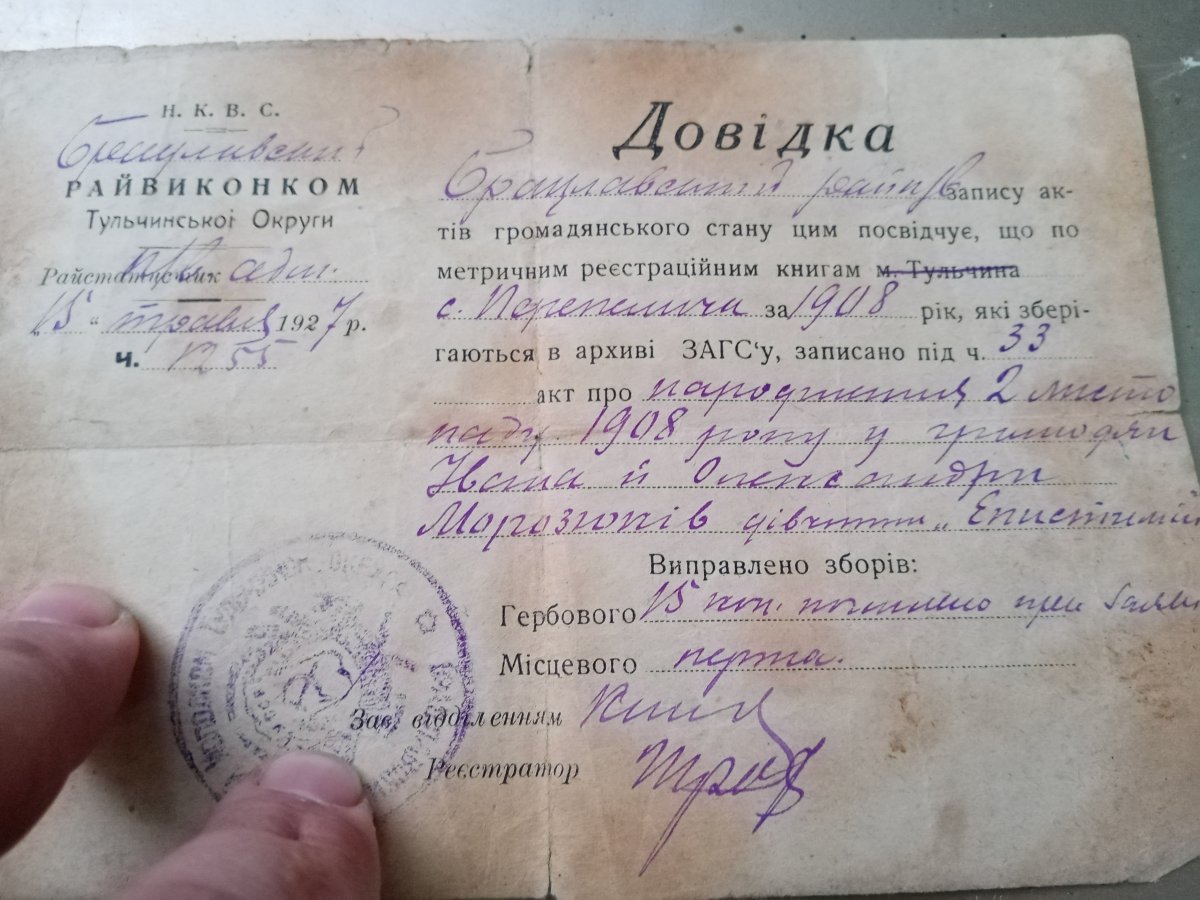 Н. К. В. С.
РАЙВИКОНКОМ
Тульчинської Округи
Райстатистик адм.
"15" травня 1927 р.
ч. 1255
Довідка
Брацлавський запису ак-
тів громадянського стану цим посвідчує, що по
метричним реєстраційним книгам м. Тульчина
с. за 1908 рік, які збері-
гаються в архиві ЗАГС‘у, записано під ч. 33
акт про народження 2 листо
паду 1908 року у громадян
Івана й Олександри
Морозюків дівчини
Виправлено зборів:
Гербового 15 коп. погашено при
Місцевого
Зав. відділенням
Реєстратор